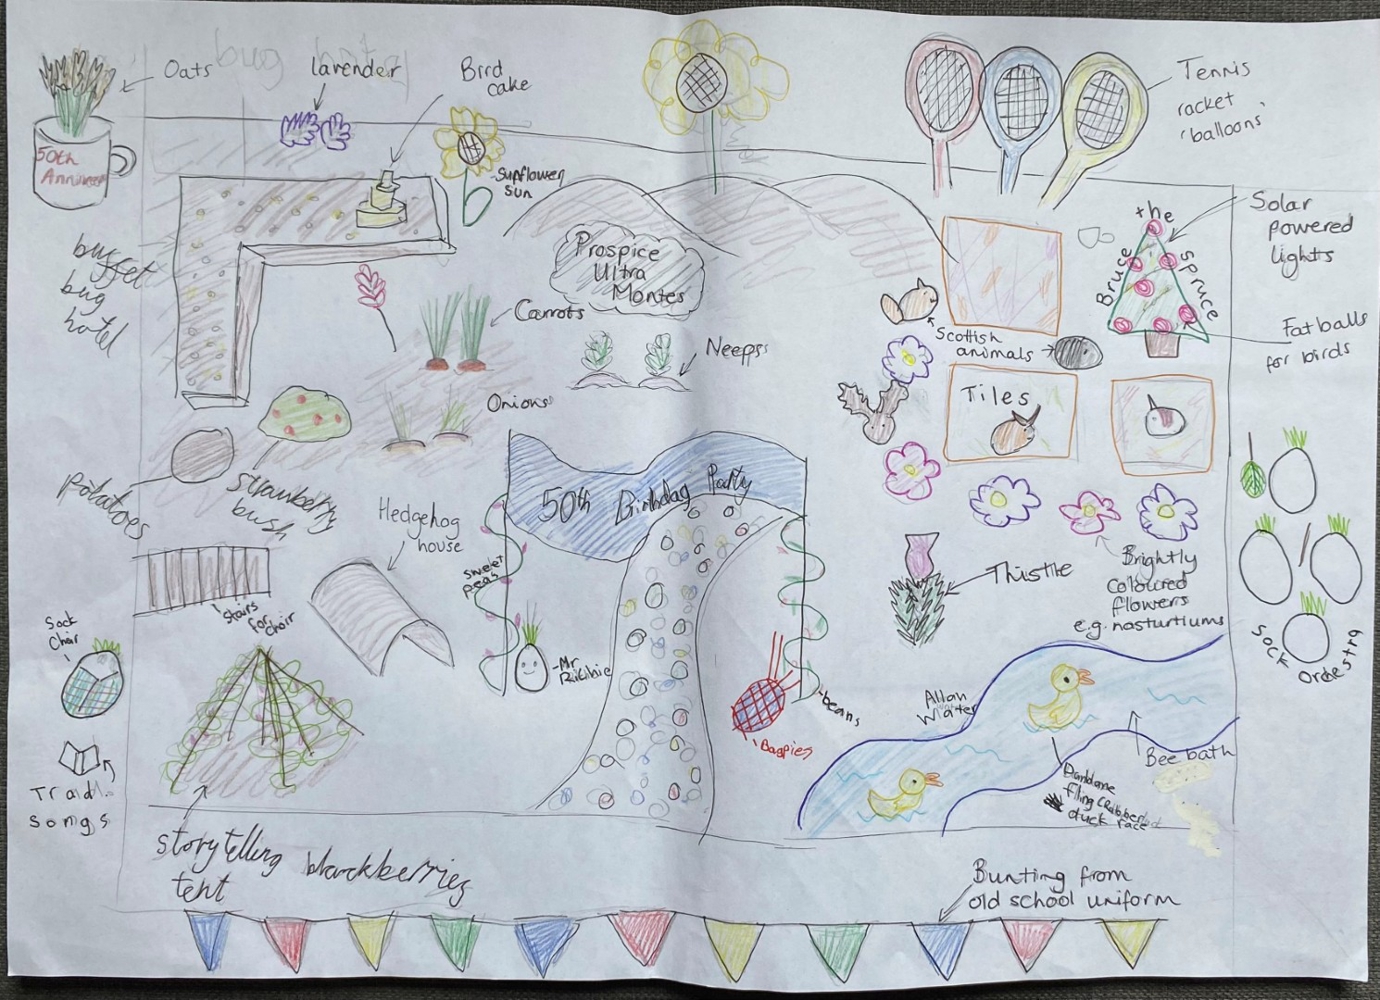 bug hotel
Oats
lavender
Bird
cake
50th
sunflower
sun
Tennis
racket
'balloons'
Solar
powered
lights
the
Bruce
Spruce
Fat balls
for birds
buffet
bug
hotel
Prospice
Ultra
Montes
Carrots
Neeps
Onions
Scottish
animals
Tiles
potatoes
strawberry
bush
50th Birthday Party
Hedgehog
house
sweet
peas
stairs
for
choir
Thistle
Brightly
coloured
flowers
e.g. nasturtiums
Sock
Chair
Mr
beans
Bagpies
Allan
Water
Bee bath
fling (Rubber
duck face
Sock
Orcestra
Trad.
songs
storytelling blackberries
tent
Bunting from
old school uniform